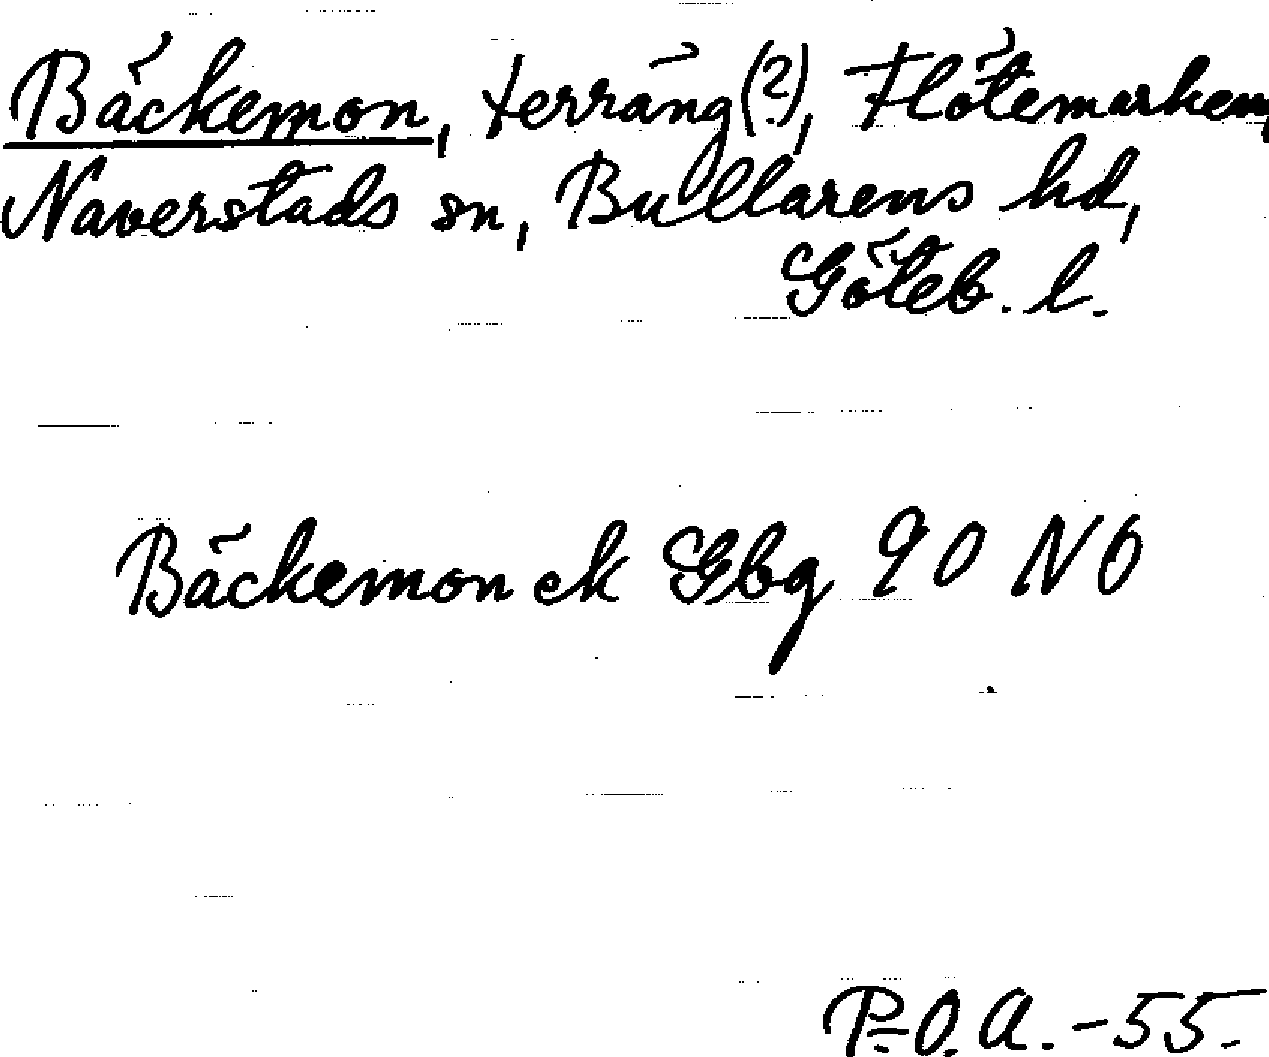 Bäckemon, terräng(?), Flötemarken,
Naverstads sn, Bullarens hd,
Göteb. l.
Bäckemon ek Gbg 90 NO
P.O.A.-55.